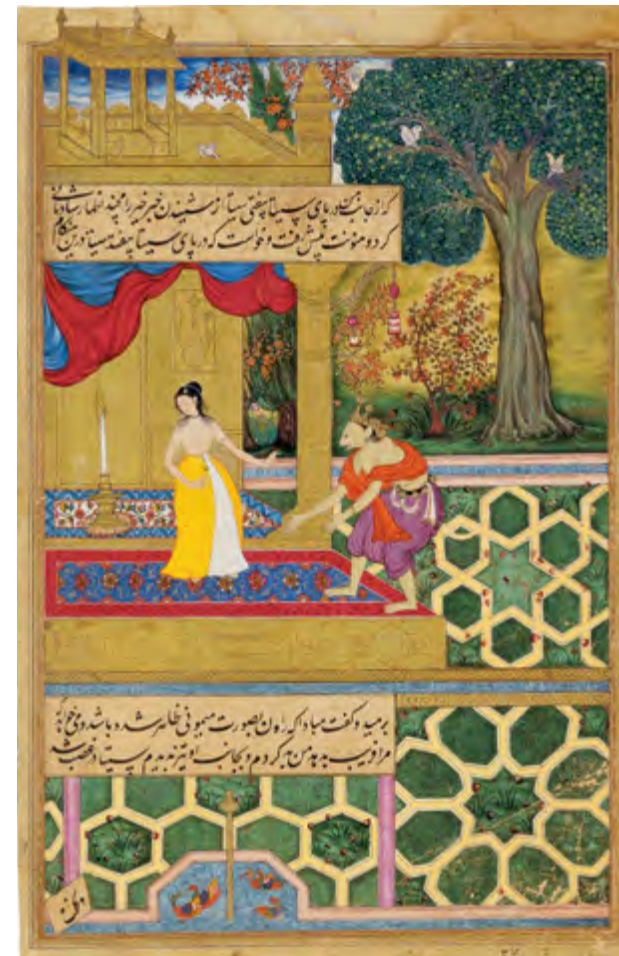 که از جانب در پای سیتا بیفتد سیتا از شنیدن خبر خیر رامچند اظهار شادمانی
کرد و هنونت پیش رفت و خواست که در پای سیتا بیفتد سیتا درین هنگام
برمید و گفت مبادا که راون بصورت میمونی ظاهر شده باشد و می خواهد
مرا فریب بدهد من کردم و بجانب او تیز ندیدم سیتا در غضب شد